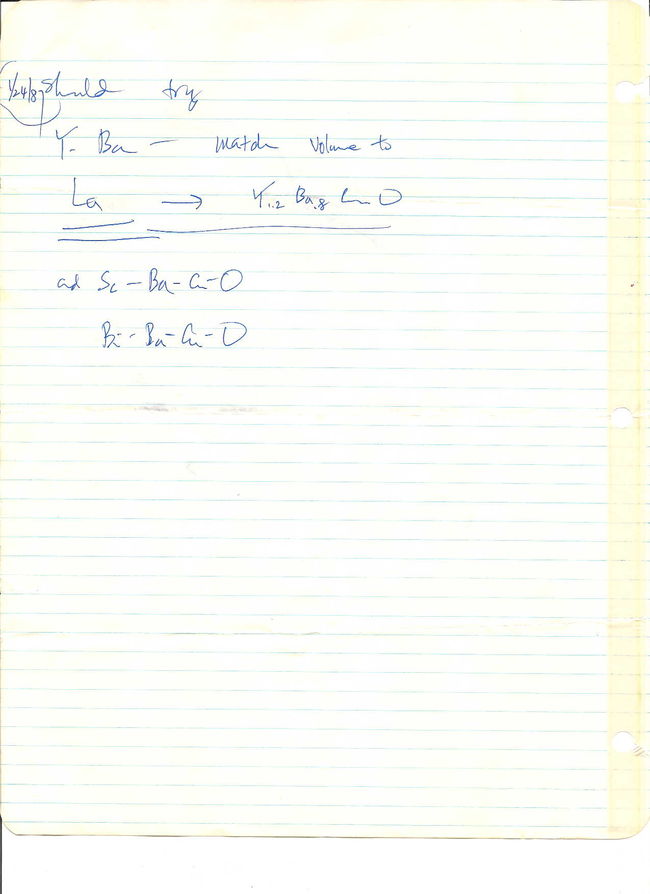 1/24/87 Should try
Y-Ba — match volume to
La → Y1.2 Ba.8 Cu O
and Sc-Ba-Cu-O
Bi-Ba-Cu-O